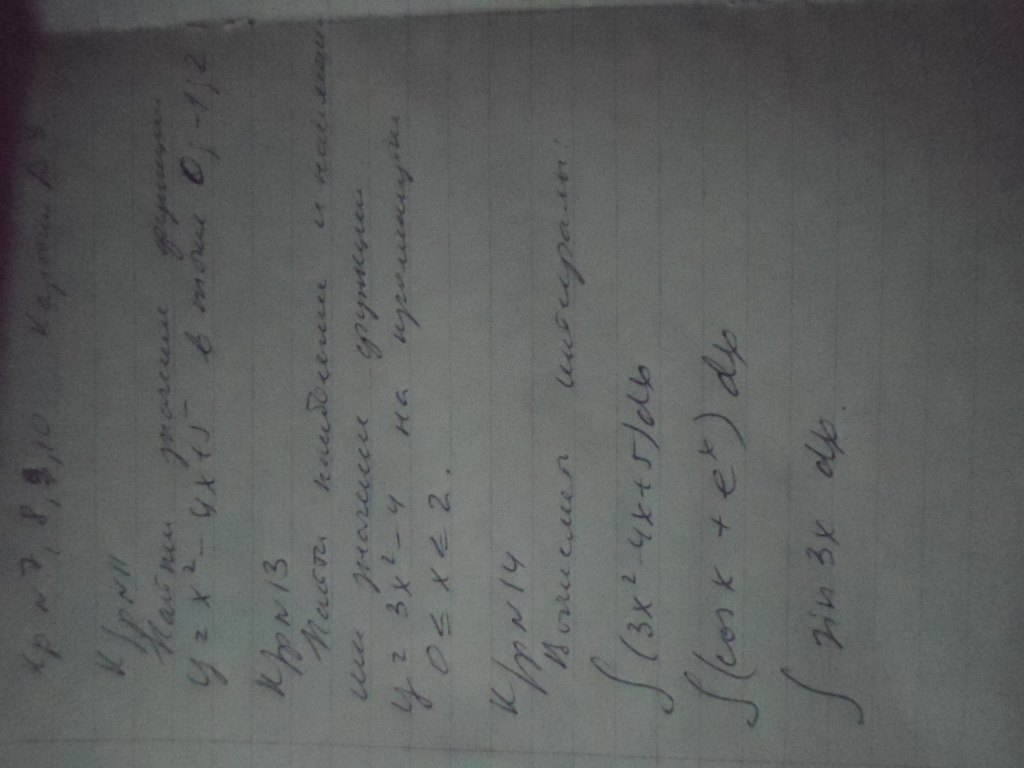 Кр №7, 8, 9, 10 Картин
К/р №11
Найти значение функции
y = x² - 4x + 5 в точке 0; -1; 2
К/р №13
Найти наиболее и наимень
шее значение функции
y = 3x² - 4 на
0 ≤ x ≤ 2.
К/р №14
Вычислить интегралы:
∫(3x² - 4x + 5)dx
∫(cos x + eˣ) dx
∫ sin 3x dx.